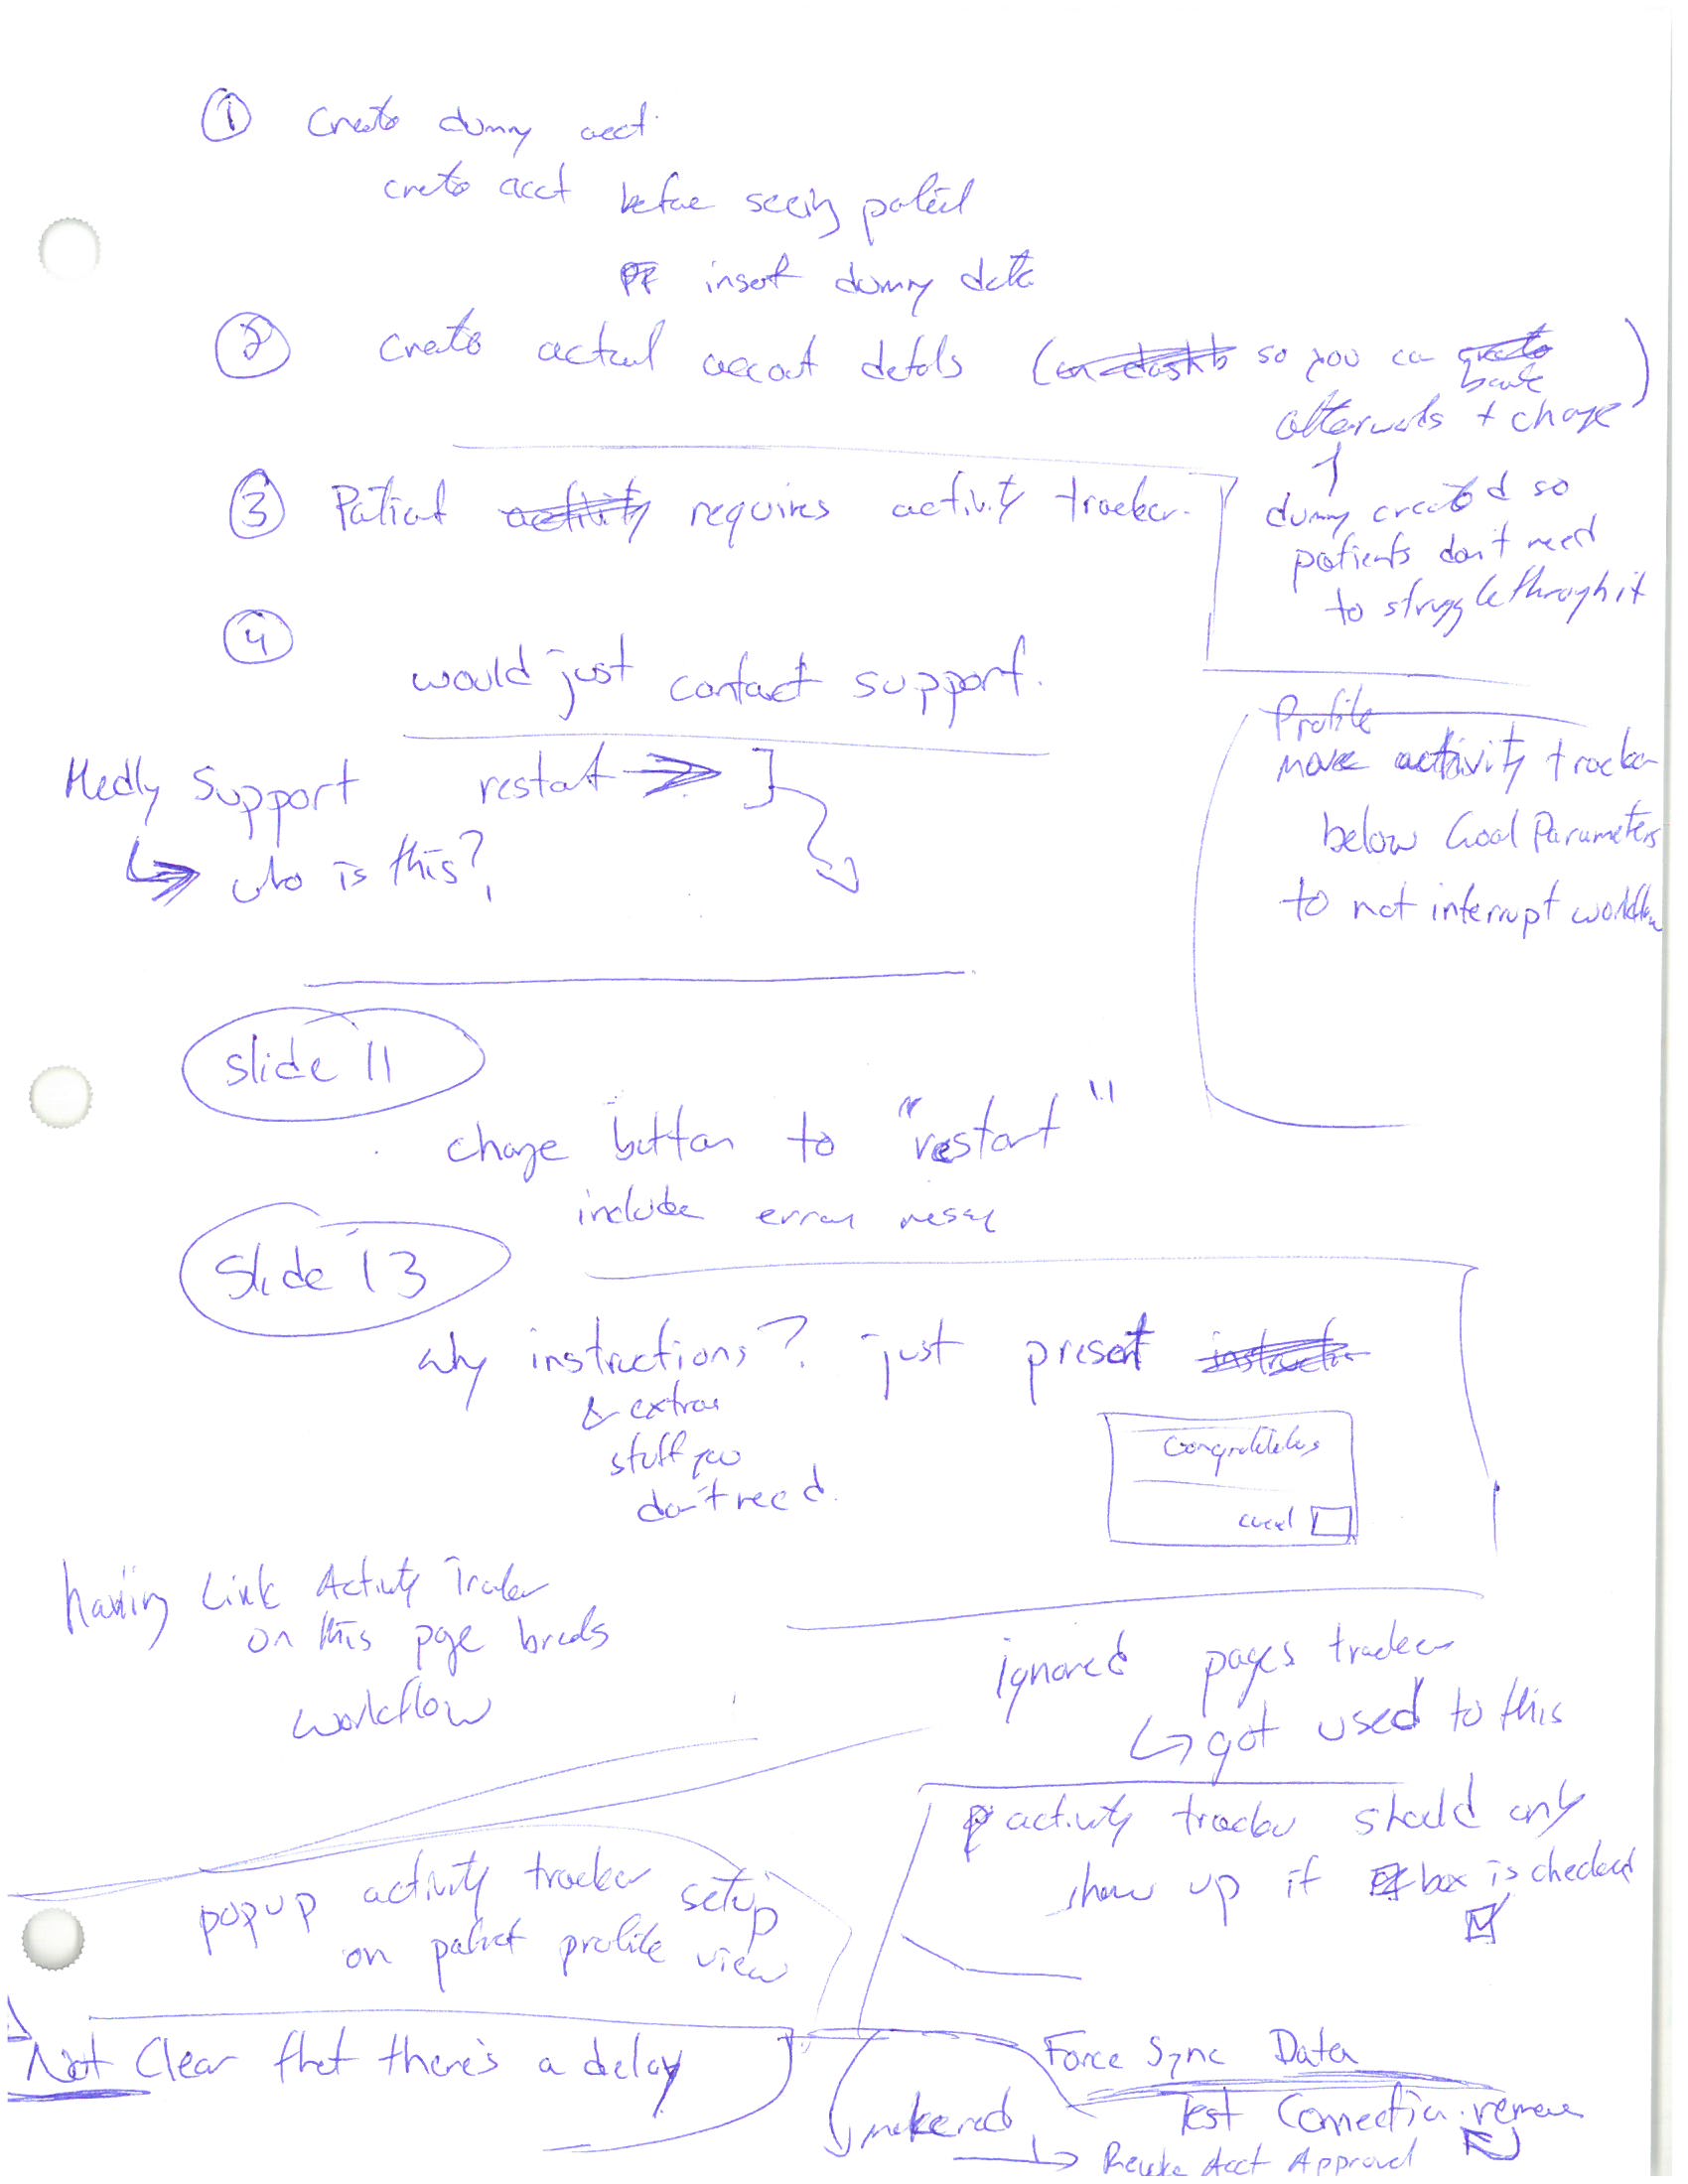 ① Create dummy acct.
create acct before seeing patient
insert dummy data
② Create actual account details (so you can
afterwards + change)
dummy created so
patients don't need
to struggle through it
③ Patient activity requires activity tracker.
④ would just contact support.
Medly Support restart → ]
↳ who is this?
Profile
move activity tracker
below Goal Parameters
to not interrupt workflow
slide 11
change button to "restart"
include error
Slide 13
why instructions? just present
& extra
stuff you
don't need.
Congratulations
cancel
having Link Activity Tracker
on this page breaks
workflow
ignored pages tracker
↳ got used to this
activity tracker should only
show up if box is checked
popup activity tracker setup
on patient profile view
Not Clear that there's a delay
Force Sync Data
Test Connection. remove
make red
→ Revoke Acct Approval